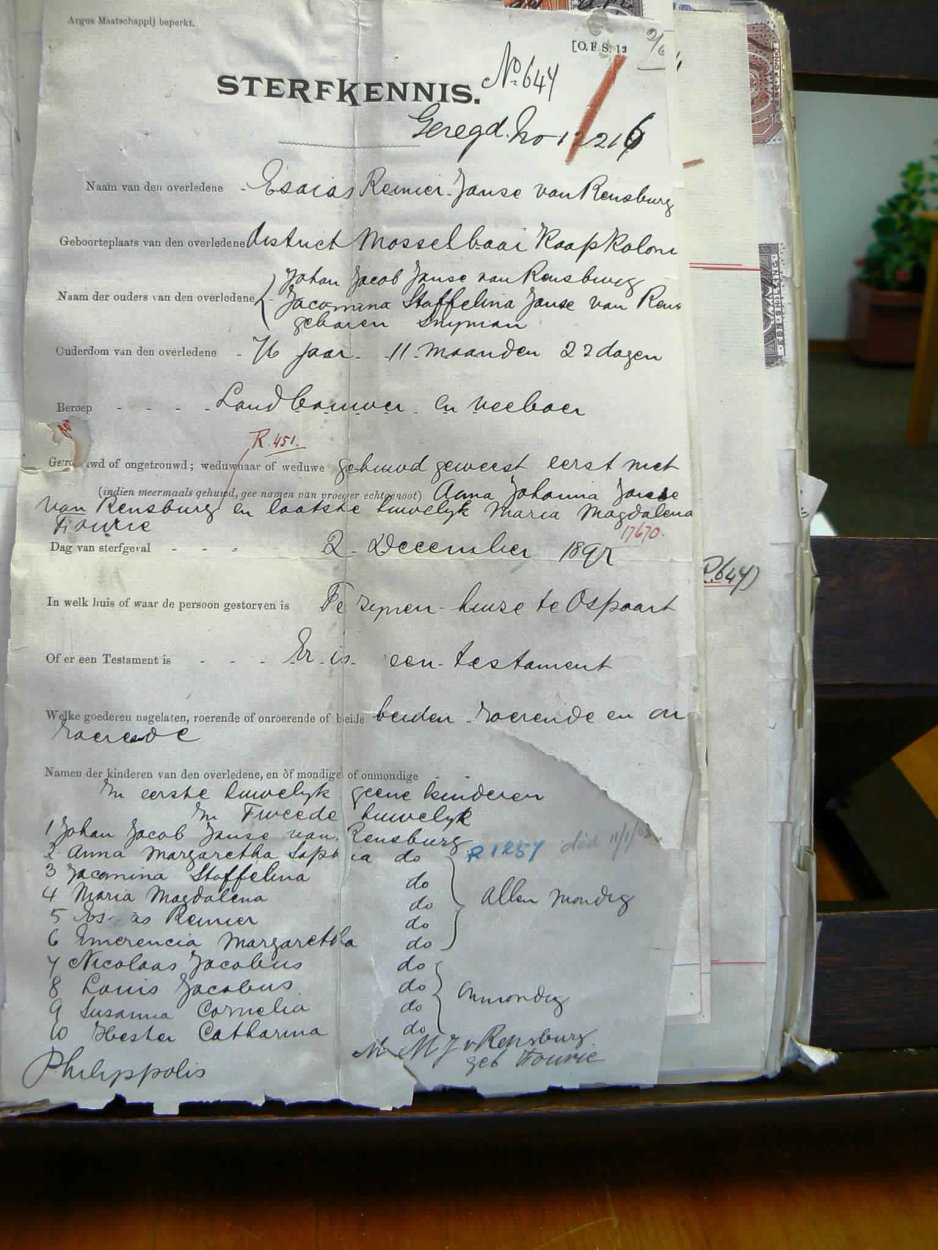 Argus Maatschappij beperkt.
[O.F.S. 12
STERFKENNIS. No. 647
Geregd. No 12216
Naam van den overledene - Esaias Renier Janse van Rensburg
Geboorteplaats van den overledene district Mosselbaai Kaap Koloni
Naam der ouders van den overledene { Johan Jacob Janse van Rensburg
Jacomina Stoffelina Janse van Rens
geboren Snyman
Ouderdom van den overledene - 76 jaar. 11 maanden 22 dagen
Beroep - - - - Landbouwer en veeboer
R.451.
Getrouwd of ongetrouwd; weduwnaar of weduwe gehuwd geweest eerst met
(indien meermaals gehuwd, gee namen van proeger echtgenoot) Anna Johanna Janse
van Rensburg en laatste huwelyk Maria Magdalena
Fourie
17670.
Dag van sterfgeval - - - - 2 December 189
In welk huis of waar de persoon gestorven is Te zynen huize te Ospoort
R.647)
Of er een Testament is - - - - Er is een testament
Welke goederen nagelaten, roerende of onroerende of beide beiden - roerende en on
roerende
Namen der kinderen van den overledene, en òf mondige of onmondige
In eerste huwelyk geene kinderen
In Tweede huwelyk
1 Johan Jacob Janse van Rensburg
2 Anna Margaretha Sophia do R1257 died 11/1/
3 Jacomina Stoffelina do
4 Maria Magdalena do Allen mondig
5 Es as Renier do
6 Emerencia Margaretha do
7 Nicolaas Jacobus do
8 Louis Jacobus do Onmondig
9 Susanna Cornelia do
10 Hester Catharina do
M M J v Rensburg
geb Fourie
Philippolis